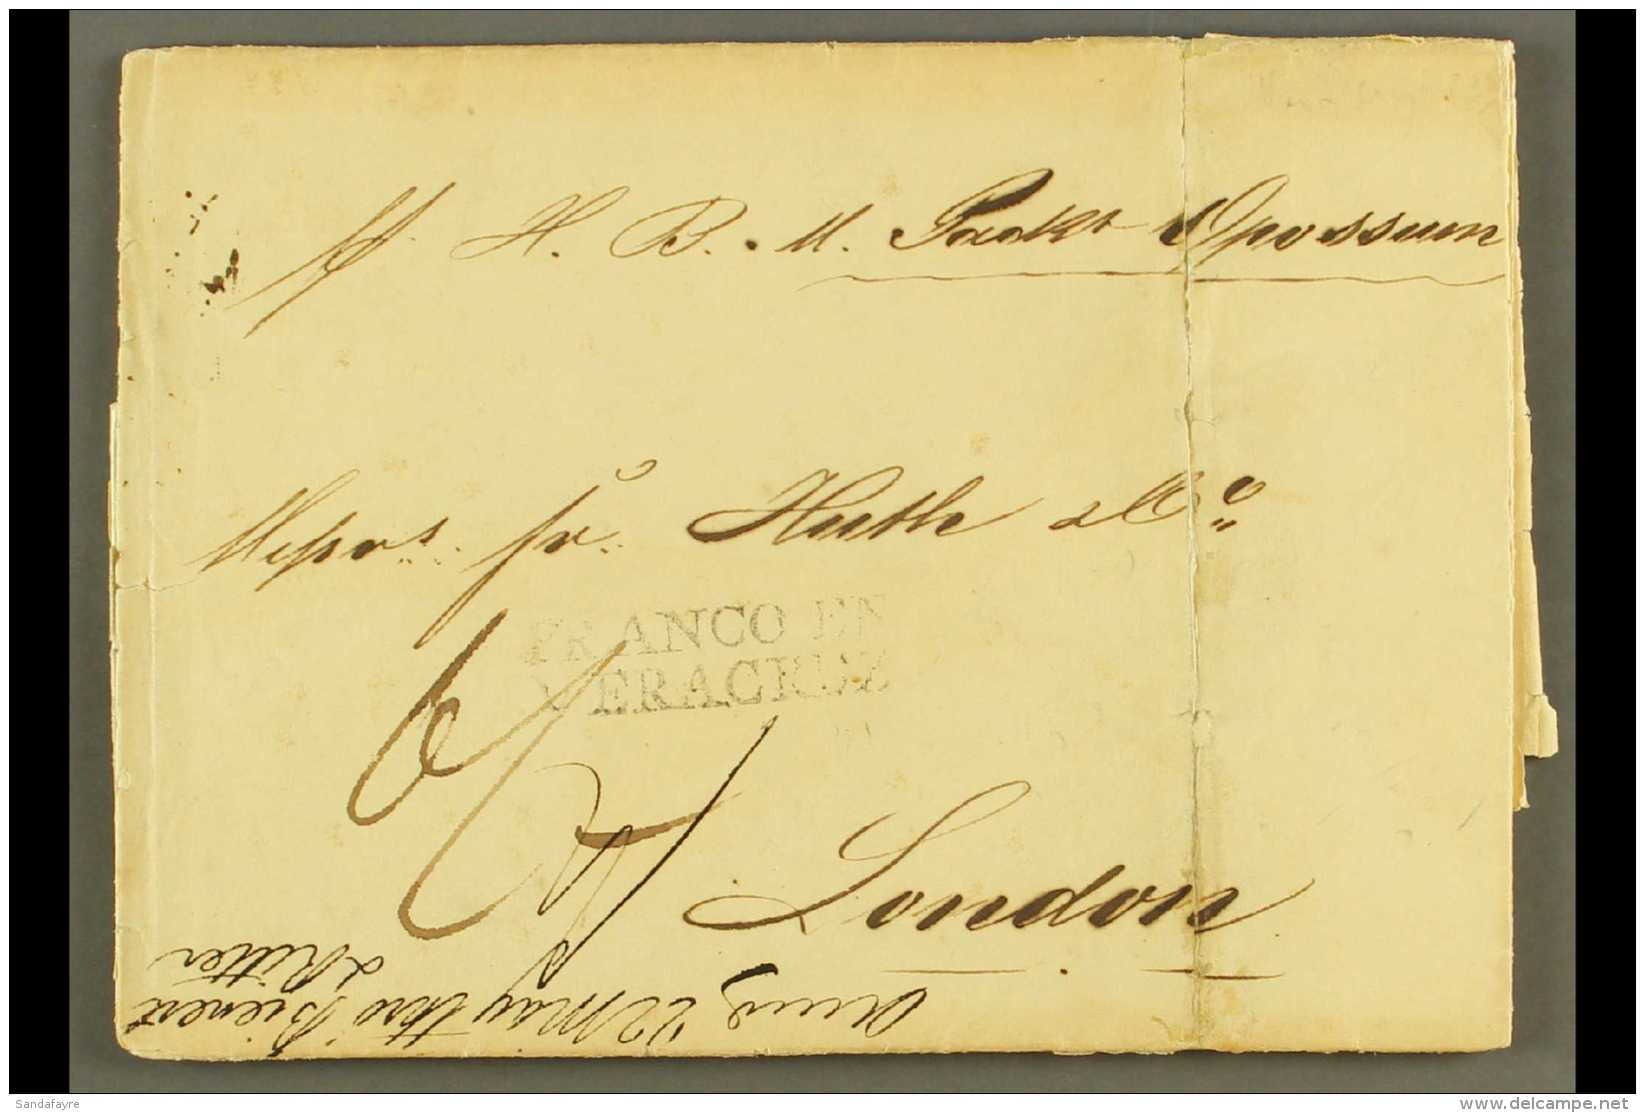 H. B. M. Packt Opossum
Messrs. Fr. Huth & Co.
FRANCO EN
VERACRUZ
London
22 May
& Ritter
Sandafayre
www.delcampe.net